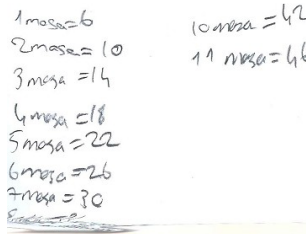 1 mosa=6
2 mosa=10
3 mosa=14
4 mosa=18
5 mosa=22
6 mosa=26
7 mosa=30
10 mosa=42
11 mosa=46